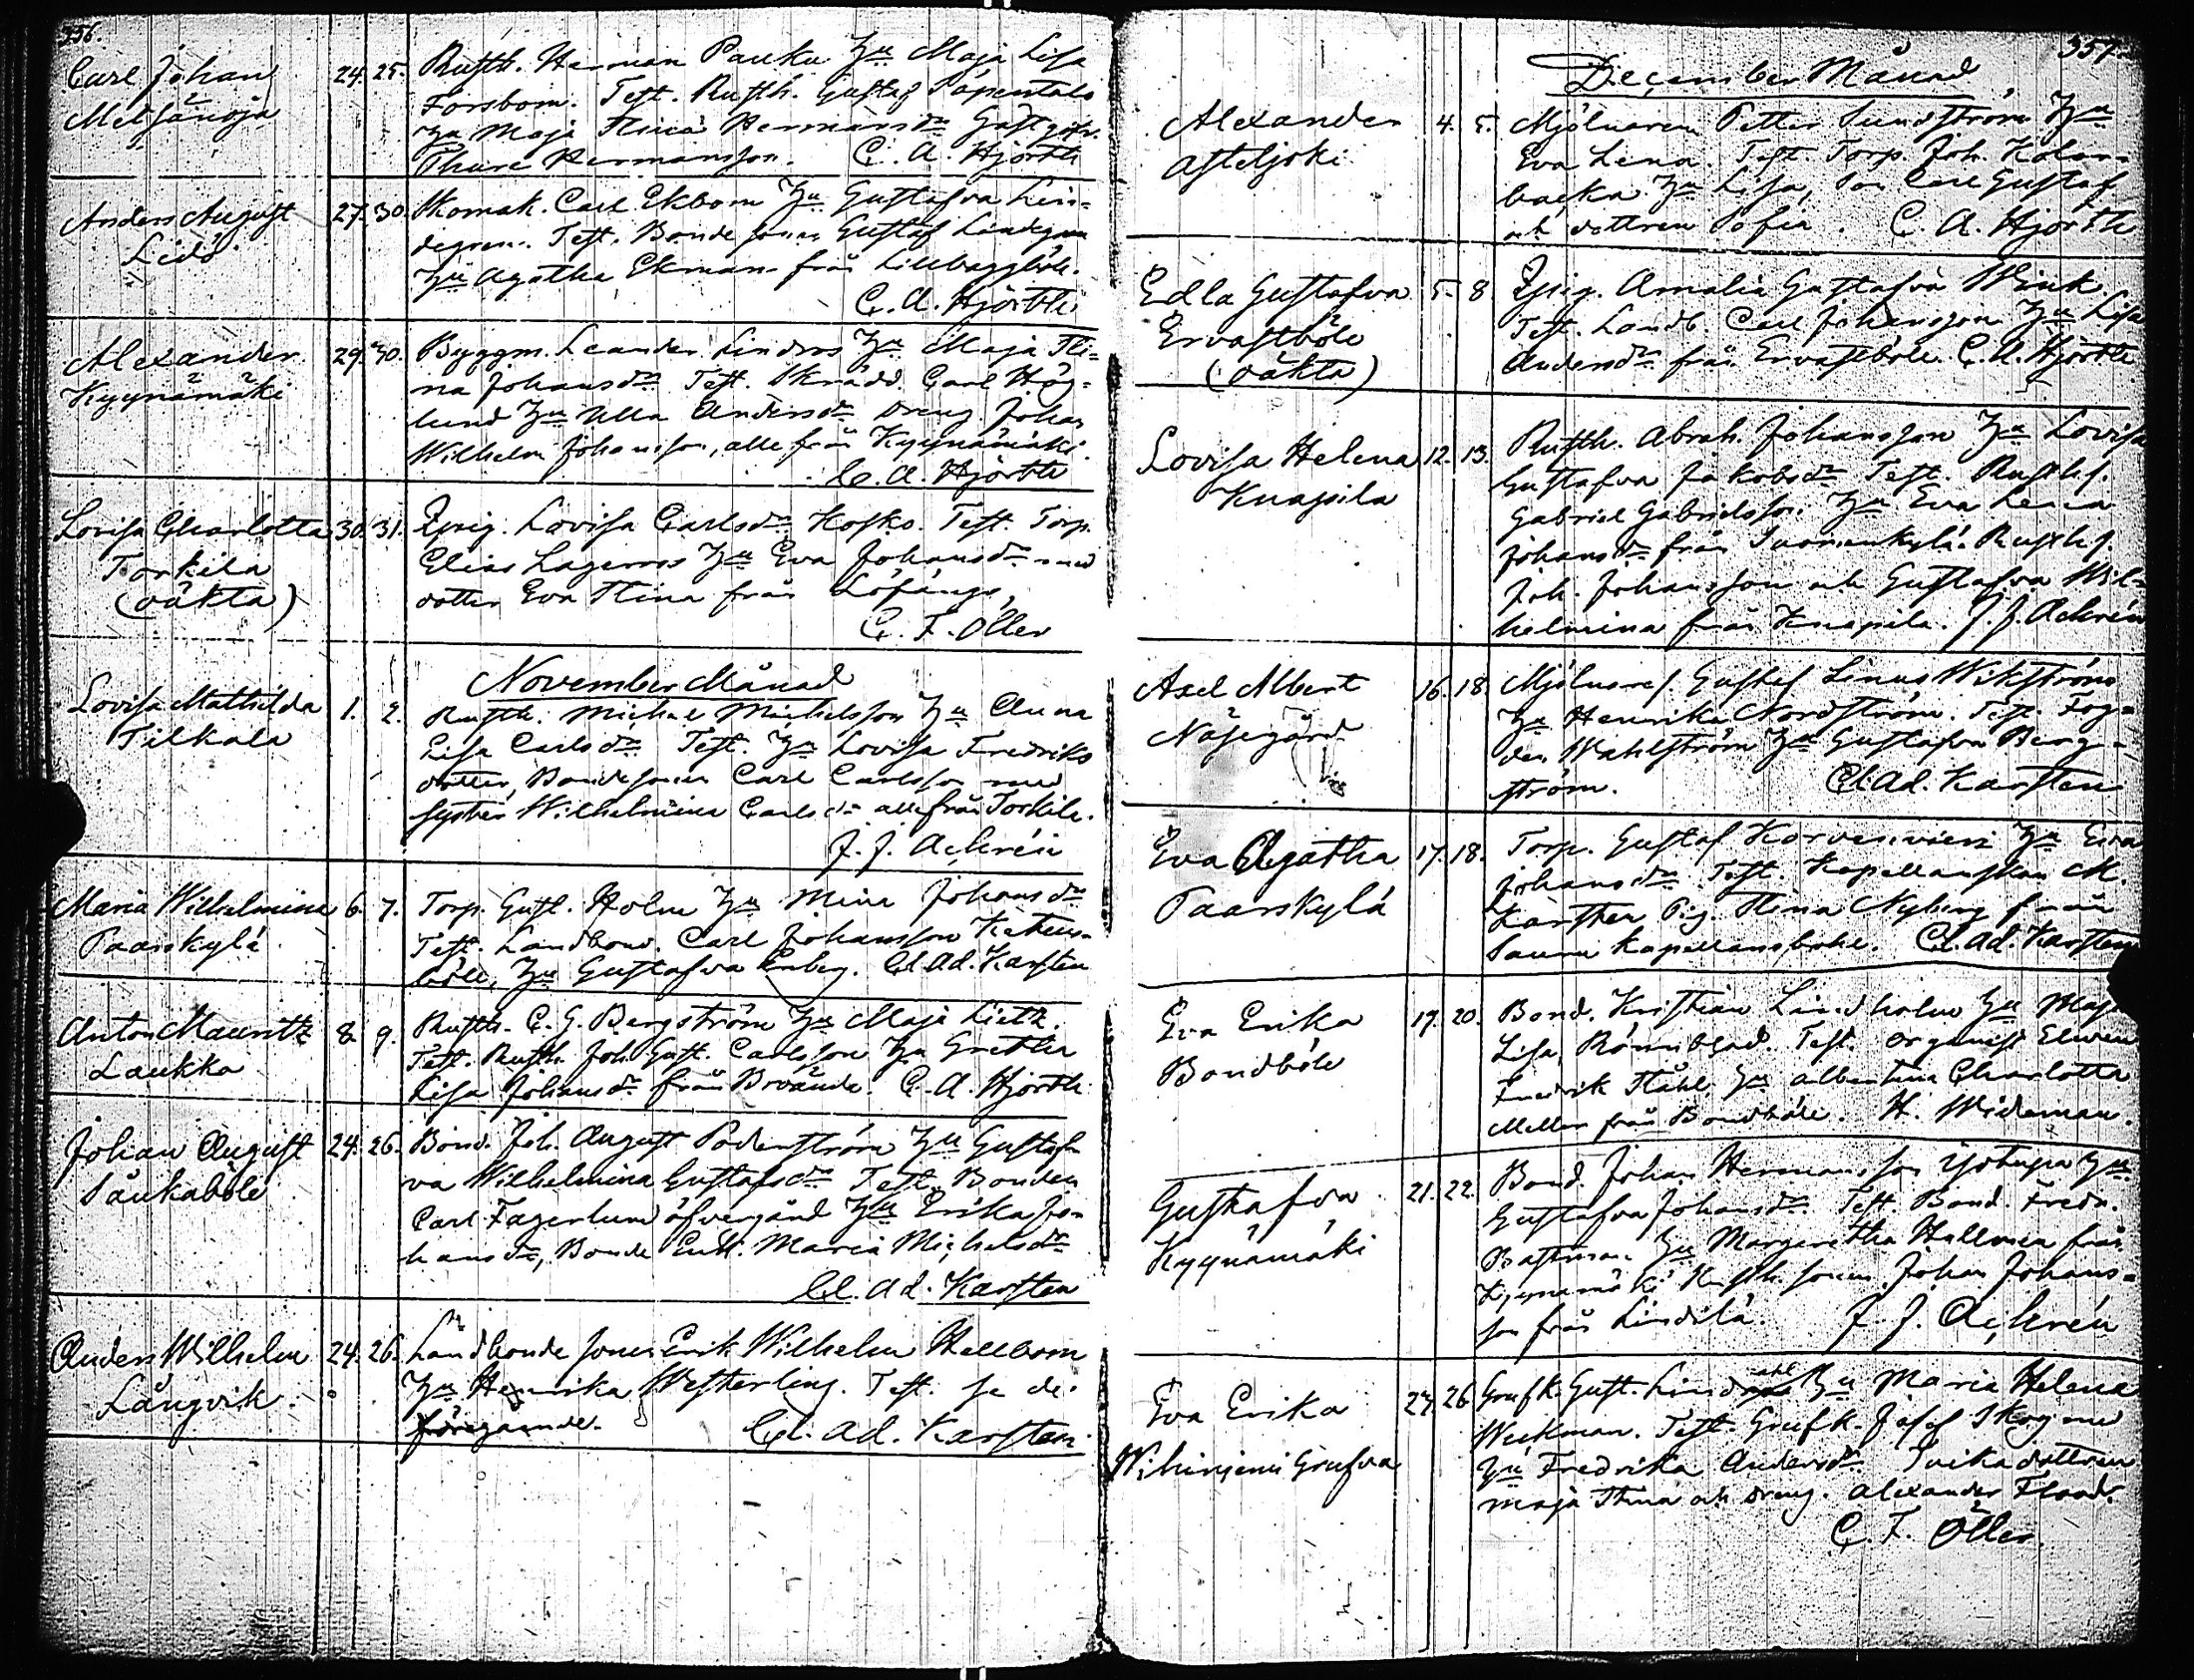 336.
Carl Johan
Metsänoja
24. 25. Rusth. Herman Pauku Hu Maja Lisa
Forsbom. Test. Rusth. Gustaf Sapentalo
Hu Maja Stina Hermansdr Gästgifv.
Thure Hermansson. C. A. Hjorth
Anders August
Lidö.
27. 30. Skomak. Carl Ekbom Hu Gustafva Lin-
degren. Test. Bonde sonen Gustaf Lindegren
Hu Agatha Ekman från Lillbaggböle.
C. A. Hjorth
Alexander
Kyynämäki
29. 30. Byggm. Leander Lindros Hu Maja Sti-
na Johansdr Test. Skrädd. Carl Hög-
lund Hu Ulla Andersdr Dreng Johan
Wilhelm Johansson, alle från Kyynämäki.
C. A. Hjorth
Lovisa Charlotta
Torkila
(oäkta)
30. 31. Qpig. Lovisa Carlsdr Kosko. Test. Torp.
Elias Lagerros Hu Eva Johansdr med
dotter Eva Stina från Löfänge,
C. F. Öller
November Månad
Lovisa Mathilda
Tilkala
1. 2. Rusth. Michel Michelsson Hu Anna
Lisa Carlsdr Test. Hu Lovisa Fredriks
dotter, Bondesonen Carl Carlsson med
syster Wilhelmina Carlsdr alle från Torkila.
J. J. Achrén
Maria Wilhelmina
Paarskylä
6. 7. Torp. Gust. Holm Hu Mina Johansdr
Test. Landbond. Carl Johansson
böle, Hu Gustafva Enberg. Cl. Ad. Karsten
Anton Mauritz
Laukka
8. 9. Rusth. C. G. Bergström Hu Maja Lietz.
Test. Rusth. Joh. Gust. Carlsson Hu Gretha
Lisa Johansdr från Brоände. C. A. Hjorth
Johan August
Säukaböle
24. 26. Bond. Joh. August Söderström Hu Gustaf-
va Wilhelmina Gustafsdr Test. Bonden
Carl Fagerlund öfvergård Hu Erika Jo-
hansdr, Bonde Enk. Maria Michelsdr
Cl. Ad. Karsten
Anders Wilhelm
Långvik.
24. 26. Landbonde sonen Erik Wilhelm Hellbom
Hu Henrika Westerling. Test. se de
föregående. Cl. Ad. Karsten
337.
December Månad
Alexander
Asteljoki
4. 5. Mjölnaren Petter Sundström Hu
Eva Lena. Test. Torp. Joh. Kolar-
backa Hu Lisa, Son Carl Gustaf
och dottren Sofia. C. A. Hjorth
Edla Gustafva
Ervastböle
(oäkta)
5. 8 Qpig. Amalia Gustafva Wink
Test. Landb. Carl Johansson Hu Lisa
Andersdr från Ervastböle. C. A. Hjorth
Lovisa Helena
Knapila
12. 13. Rusth. Abrah. Johansson Hu Lovisa
Gustafva Jakobsdr Test. Rusths.
Gabriel Gabrielsson Hu Eva Lena
Johansdr från Suomenkylä. Rusths.
Joh. Johansson och Gustafva Wil-
helmina från Knapila. J. J. Achrén
Axel Albert
Näsegård
16. 18. Mjölnares. Gustaf Linus Wikström
Hu Henrika Nordström. Test. Fog-
den Wahlström Hu Gustafva Berg-
ström. Cl. Ad. Karsten
Eva Agatha
Paarskylä
17. 18. Torp. Gustaf Korvenvieri Hu Eva
Johansdr Test. Kapellanskan M.
Karsten Pig. Stina Nyberg från
Sauru Kapellansbohl. Cl. Ad. Karsten
Eva Erika
Bondböle
17. 20. Bond. Kristian Lindholm Hu Maja
Lisa Rönnblad. Test. Organist Elwen
Fredrik Ståhl Hu Albertina Charlotta
Meller från Bondböle. H. Wideman.
Gustafva
Kyynämäki
21. 22. Bond. Johan Hermansson Yötupa Hu
Gustafva Johansdr Test. Bond. Fredr.
Bastman Hu Margaretha Hallman från
Kyynämäki Rusth. sonen Johan Johans-
son från Lindilä. J. J. Achrén
Eva Erika
Wihiniemi Grufva
24. 26 Grufk. Gust. Lindahl Hu Maria Helena
Weckman. Test. Grufk. Josef Skog med
Hu Fredrika Andersdr. Pika dottren
Maja Stina och Dreng. Alexander Flood.
C. F. Öller